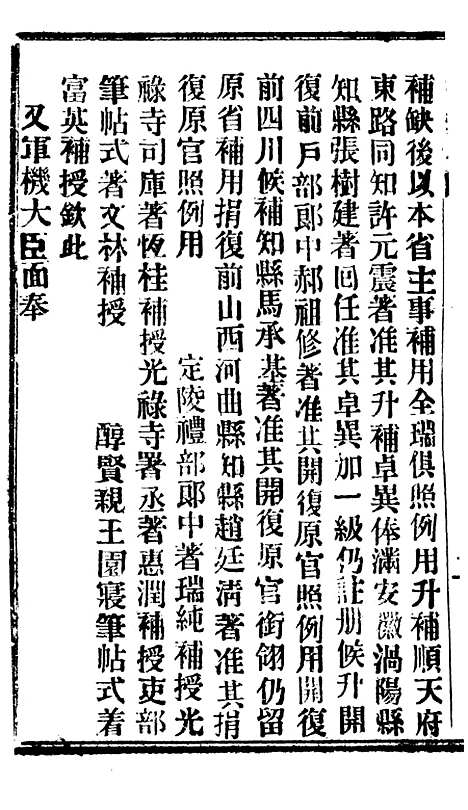 補缺後以本省主事補用全瑞俱照例用升補順天府
東路同知許元震著准其升補卓異俸滿安徽渦陽縣
知縣張樹建著回任准其卓異加一級仍註册候升開
復前戶部郎中郝祖修著准其開復原官照例用開復
前四川候補知縣馬承基著准其開復原官銜翎仍留
原省補用捐復前山西河曲縣知縣趙廷清著准其捐
復原官照例用 定陵禮部郎中著瑞純補授光
祿寺司庫著恆桂補授光祿寺署丞著惠潤補授吏部
筆帖式著文林補授 醇賢親王園寢筆帖式着
富英補授欽此
又軍機大臣面奉